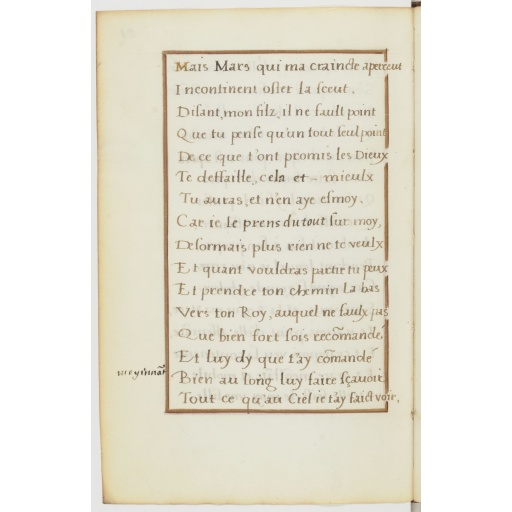 Mais Mars qui ma craincte aperceut
Incontinent oster la sceut,
Disant, mon filz, il ne fault point
Que tu pense qu'un tout seul point
De ce que t'ont promis les Dieux
Te deffaille, cela et - mieulx
Tu auras, et n'en aye esmoy,
Car ie le prens du tout sur moy,
Desormais plus rien ne te veulx
Et quant vouldras partir tu peux
Et prendre ton chemin la bas
Vers ton Roy, auquel ne faulx pas
Que bien fort sois recõmandé
Et luy dy que t'ay cõmandé
Bien au long luy faire sçavoir
Tout ce qu'au Ciel ie t'ay faict voir.